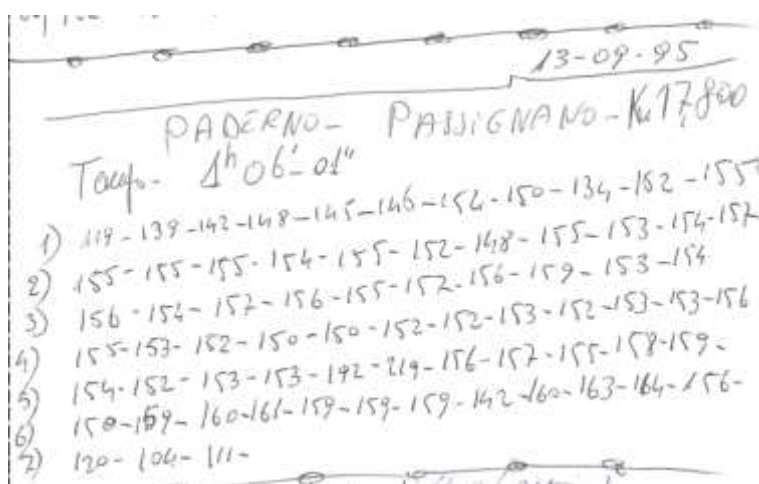 13-09-95
PADERNO- PASSIGNANO-Km 17,800
Tempo- 1h 06'-01"
1) 119-139-142-148-145-146-154-150-134-152-155
2) 155-155-155-154-155-152-148-155-153-154-157
3) 156-154-157-156-155-157-156-159-153-154
4) 155-153-152-150-150-152-152-153-152-153-153-156
5) 154-152-153-153-192-219-156-157-155-158-159-
6) 158-159-160-161-159-159-159-142-160-163-164-156-
7) 120-104-111-